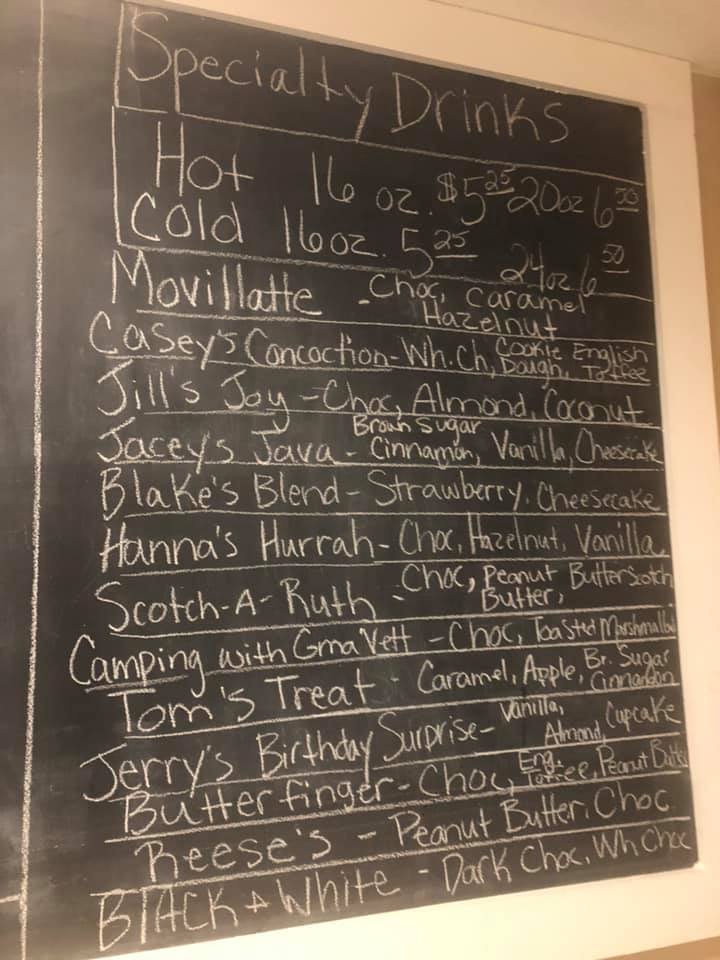 Specialty Drinks
Hot 16 oz. $5 25 20oz 6 50
Cold 16oz. 5 25 24oz 6 50
Movillatte - Choc, Caramel
Hazelnut
Casey's Concoction - Wh. Ch, Cookie Dough, English Toffee
Jill's Joy - Choc, Almond, Coconut
Jacey's Java - Brown Sugar Cinnamon, Vanilla, Cheesecake
Blake's Blend - Strawberry, Cheesecake
Hanna's Hurrah - Choc, Hazelnut, Vanilla
Scotch-A-Ruth - Choc, Peanut Butter, Butterscotch
Camping with Gma Vett - Choc, Toasted Marshmallow
Tom's Treat - Caramel, Apple, Br. Sugar Cinnamon
Jerry's Birthday Surprise - Vanilla, Almond, Cupcake
Butterfinger - Choc, Eng. Toffee, Peanut Butter
Reese's - Peanut Butter, Choc
Black + White - Dark Choc, Wh Choc